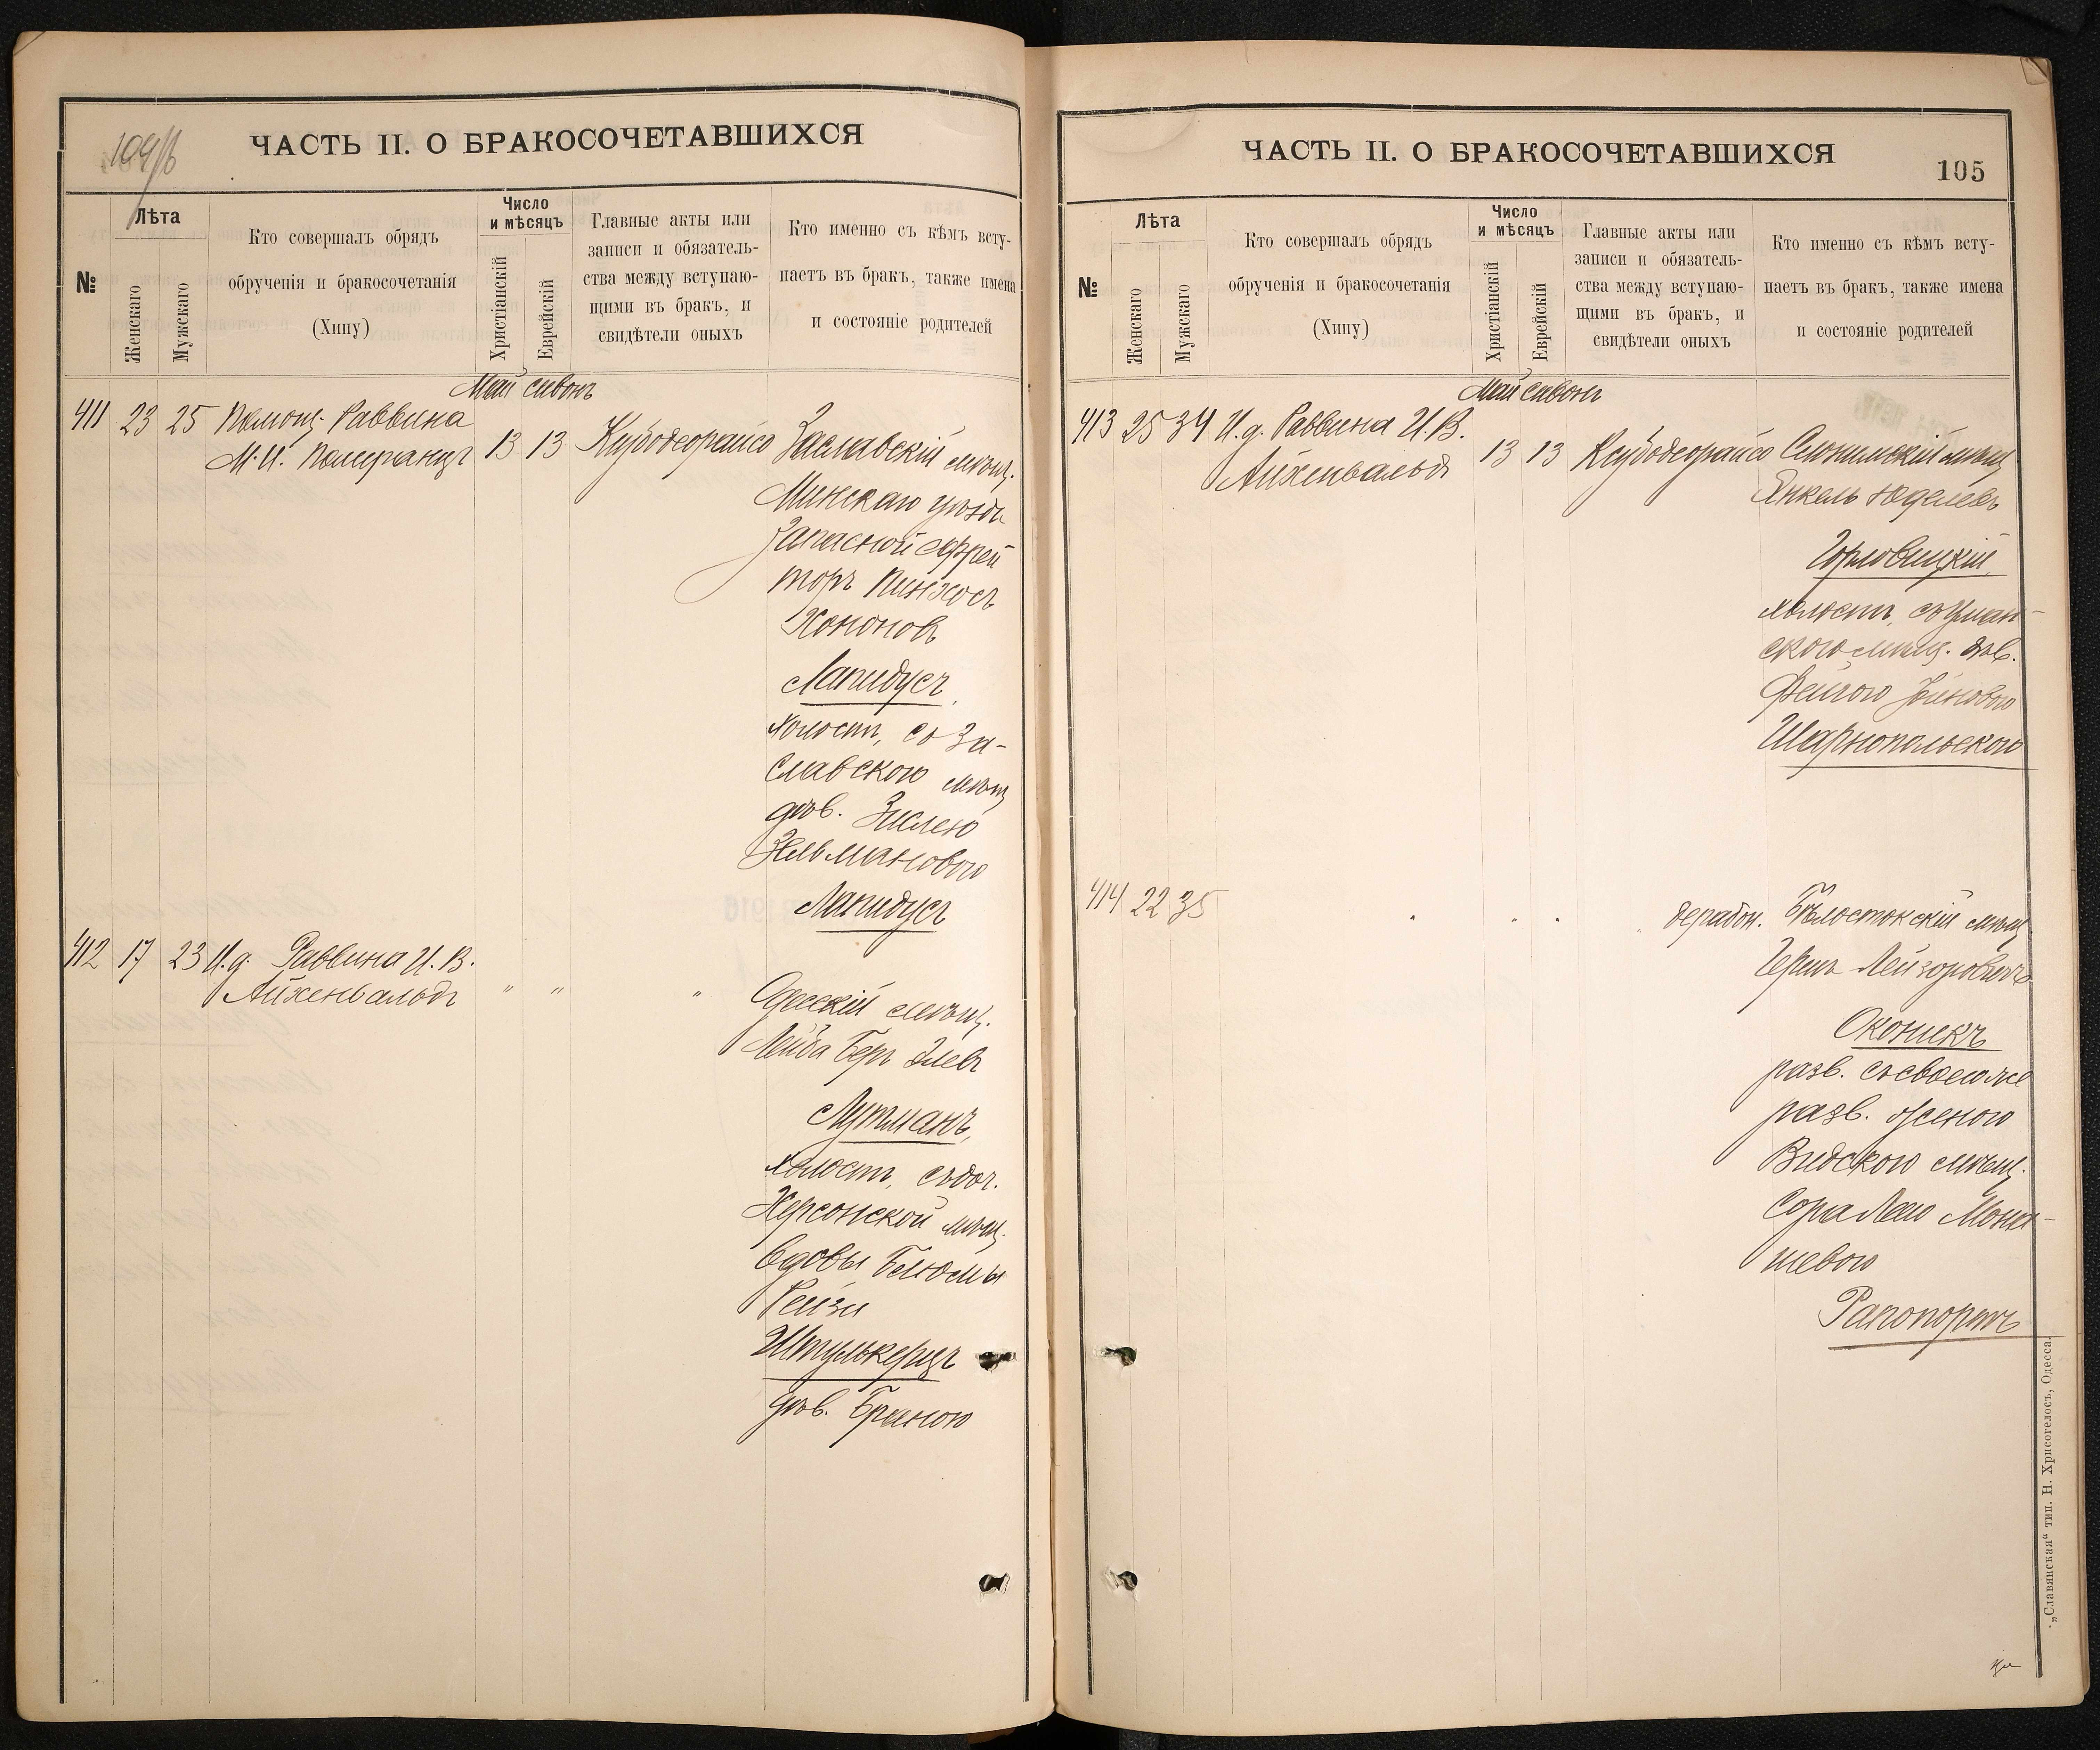 109/б
ЧАСТЬ II. О БРАКОСОЧЕТАВШИХСЯ
№
Лѣта
Женскаго
Мужскаго
Кто совершалъ обрядъ
обрученія и бракосочетанія
(Хипу)
Число
и мѣсяцъ
Христіанскій
Еврейскій
Главные акты или
записи и обязатель-
ства между вступаю-
щими въ бракъ, и
свидѣтели оныхъ
Кто именно съ кѣмъ всту-
паетъ въ бракъ, также имена
и состояніе родителей
Май сивонъ
411 23 25 Помощ. Раввина
М. И. Померанцъ 13 13 Кубодеорайсо Заславскій мѣщ.
Минскаго уѣзда
Запасной ефрей
торъ Пинхосъ
Хононов
Лапидусъ,
холост, со За-
славскою мѣщ
дѣв. Зислею
Зельмановою
Лапидусъ
412 17 23 И.д. Раввина И. В.
Айхенвальдъ " " " Одесскій мѣщ.
Лейба Беръ Элевъ
Лутманъ,
холост, съ доч.
Херсонской мѣщ.
вдовы Блюмы
Рейзи
Штулькерцъ
дѣв. Браною
ЧАСТЬ II. О БРАКОСОЧЕТАВШИХСЯ
105
№
Лѣта
Женскаго
Мужскаго
Кто совершалъ обрядъ
обрученія и бракосочетанія
(Хипу)
Число
и мѣсяцъ
Христіанскій
Еврейскій
Главные акты или
записи и обязатель-
ства между вступаю-
щими въ бракъ, и
свидѣтели оныхъ
Кто именно съ кѣмъ всту-
паетъ въ бракъ, также имена
и состояніе родителей
Май сивонъ
413 25 34 И.д. Раввина И. В.
Айхенвальдъ 13 13 Кубодеорайсо Слонимскій мѣщ
Янкель Юделевъ
Горловицкій
холост, съ Уман-
скою мѣщ. дѣв.
Фейгою
Шарнопольскою
414 22 35 дерабон. Бѣлостокскій мѣщ.
Гершъ Лейзоровичъ
Оконикъ
разв. съ своею же
разв. женою
Видскою мѣщ.
Сора Леею Мона-
шевою
Рапопортъ
„Славянская“ тип. Н. Хрисогелосъ, Одесса.